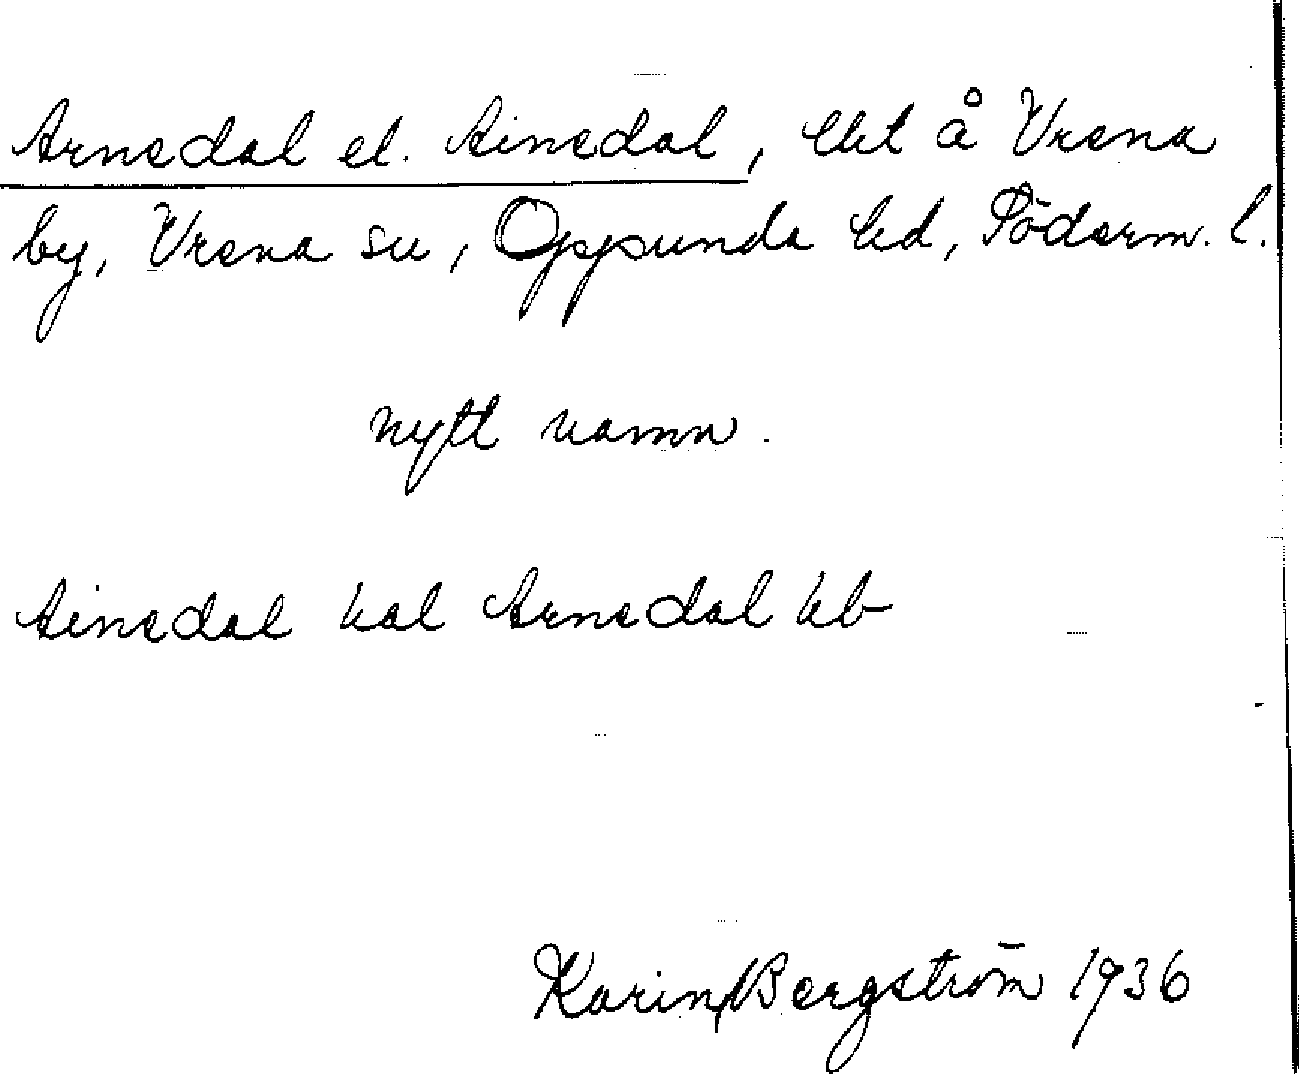 Arnsdal el. Ainsdal, lht å Vrena
by, Vrena sn, Oppunda hd, Söderm. l.
nytt namn.
Ainsdal kal Arnsdal kb
Karin Bergström 1936